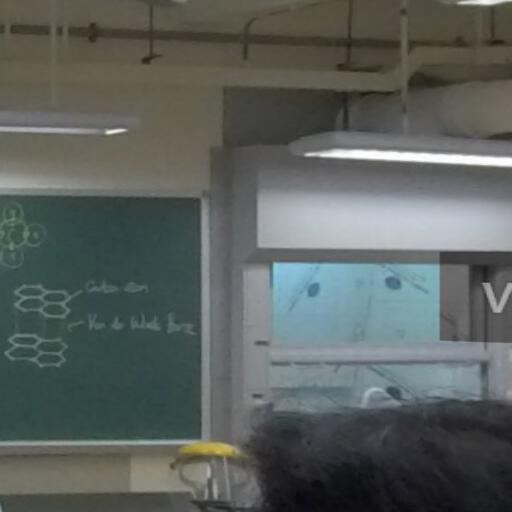 Carbon atom
Van de Waals Force
V